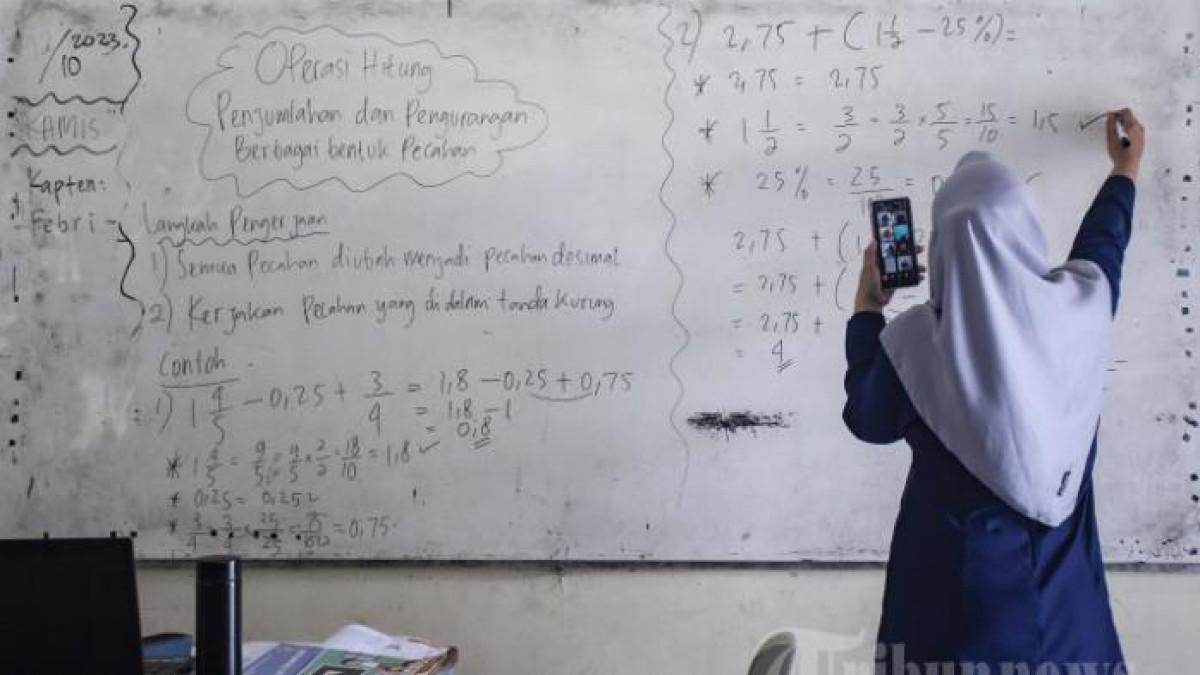 2023.
/10
KAMIS
Kapten:
Febri
Operasi Hitung
Penjumlahan dan Pengurangan
Berbagai bentuk Pecahan
Langkah Pengerjaan
1) Semua Pecahan diubah menjadi pecahan desimal
2) Kerjakan Pecahan yang di dalam tanda kurung
Contoh
1) 1 4/5 - 0,25 + 3/4 = 1,8 - 0,25 + 0,75
= 1,8 - 1
= 0,8
* 1 4/5 = 9/5 = 9/5 × 2/2 = 18/10 = 1,8 ✓
* 0,25 = 0,25
* 3/4 = 3/4 × 25/25 = 75/100 = 0,75
2) 2,75 + (1 1/2 - 25%) =
* 2,75 = 2,75
* 1 1/2 = 3/2 = 3/2 × 5/5 = 15/10 = 1,5 ✓
* 25% = 25 =
2,75 + (1
= 2,75 + (
= 2,75 +
= 4
Tribunnews